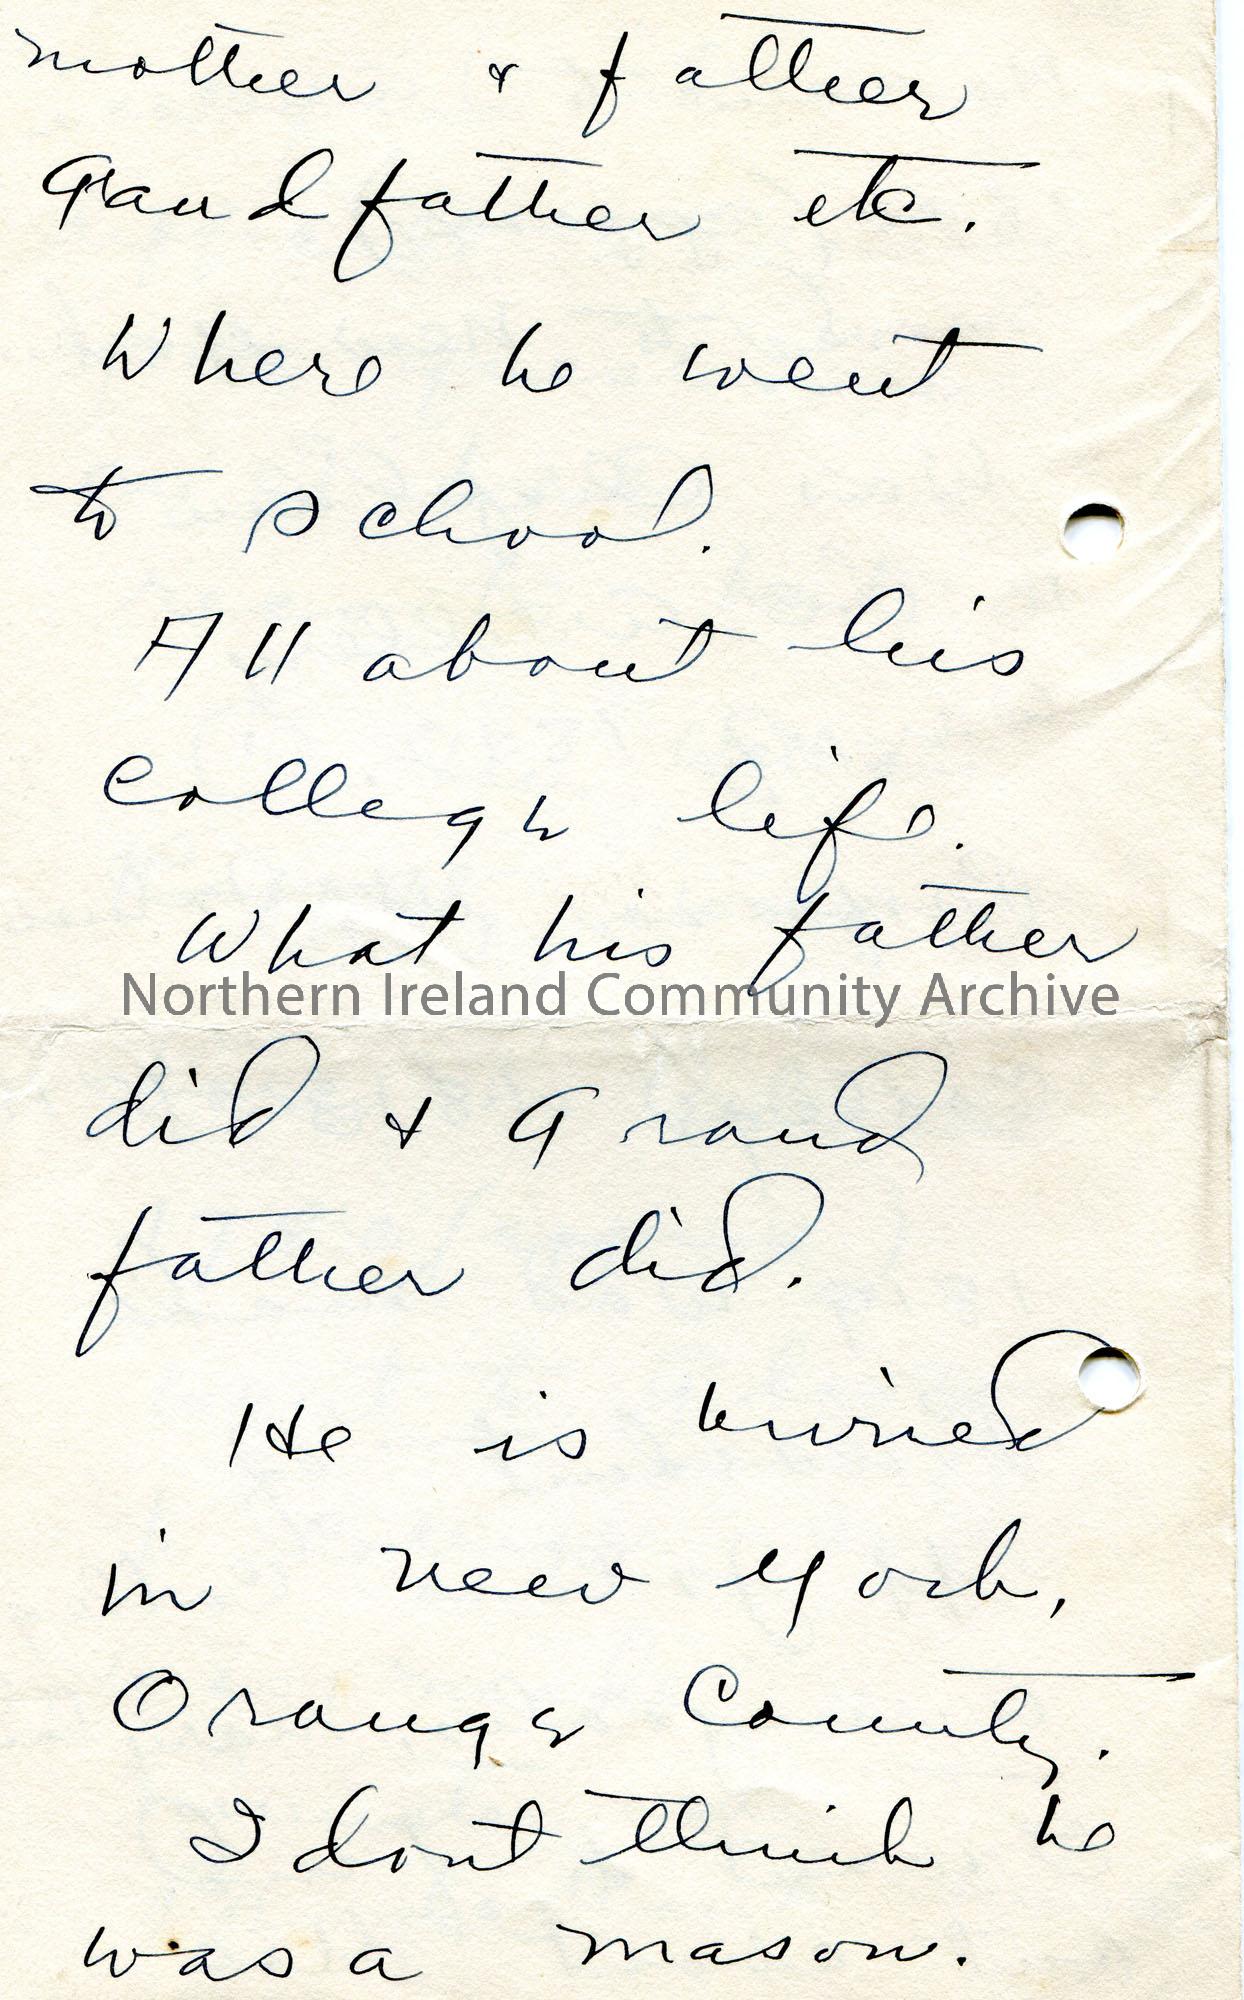 mother & father
Grandfather etc.
Where he went
to school.
All about his
college life.
What his father
Northern Ireland Community Archive
did & Grand
father did.
He is buried
in New York,
Orange County.
I dont think he
was a mason.